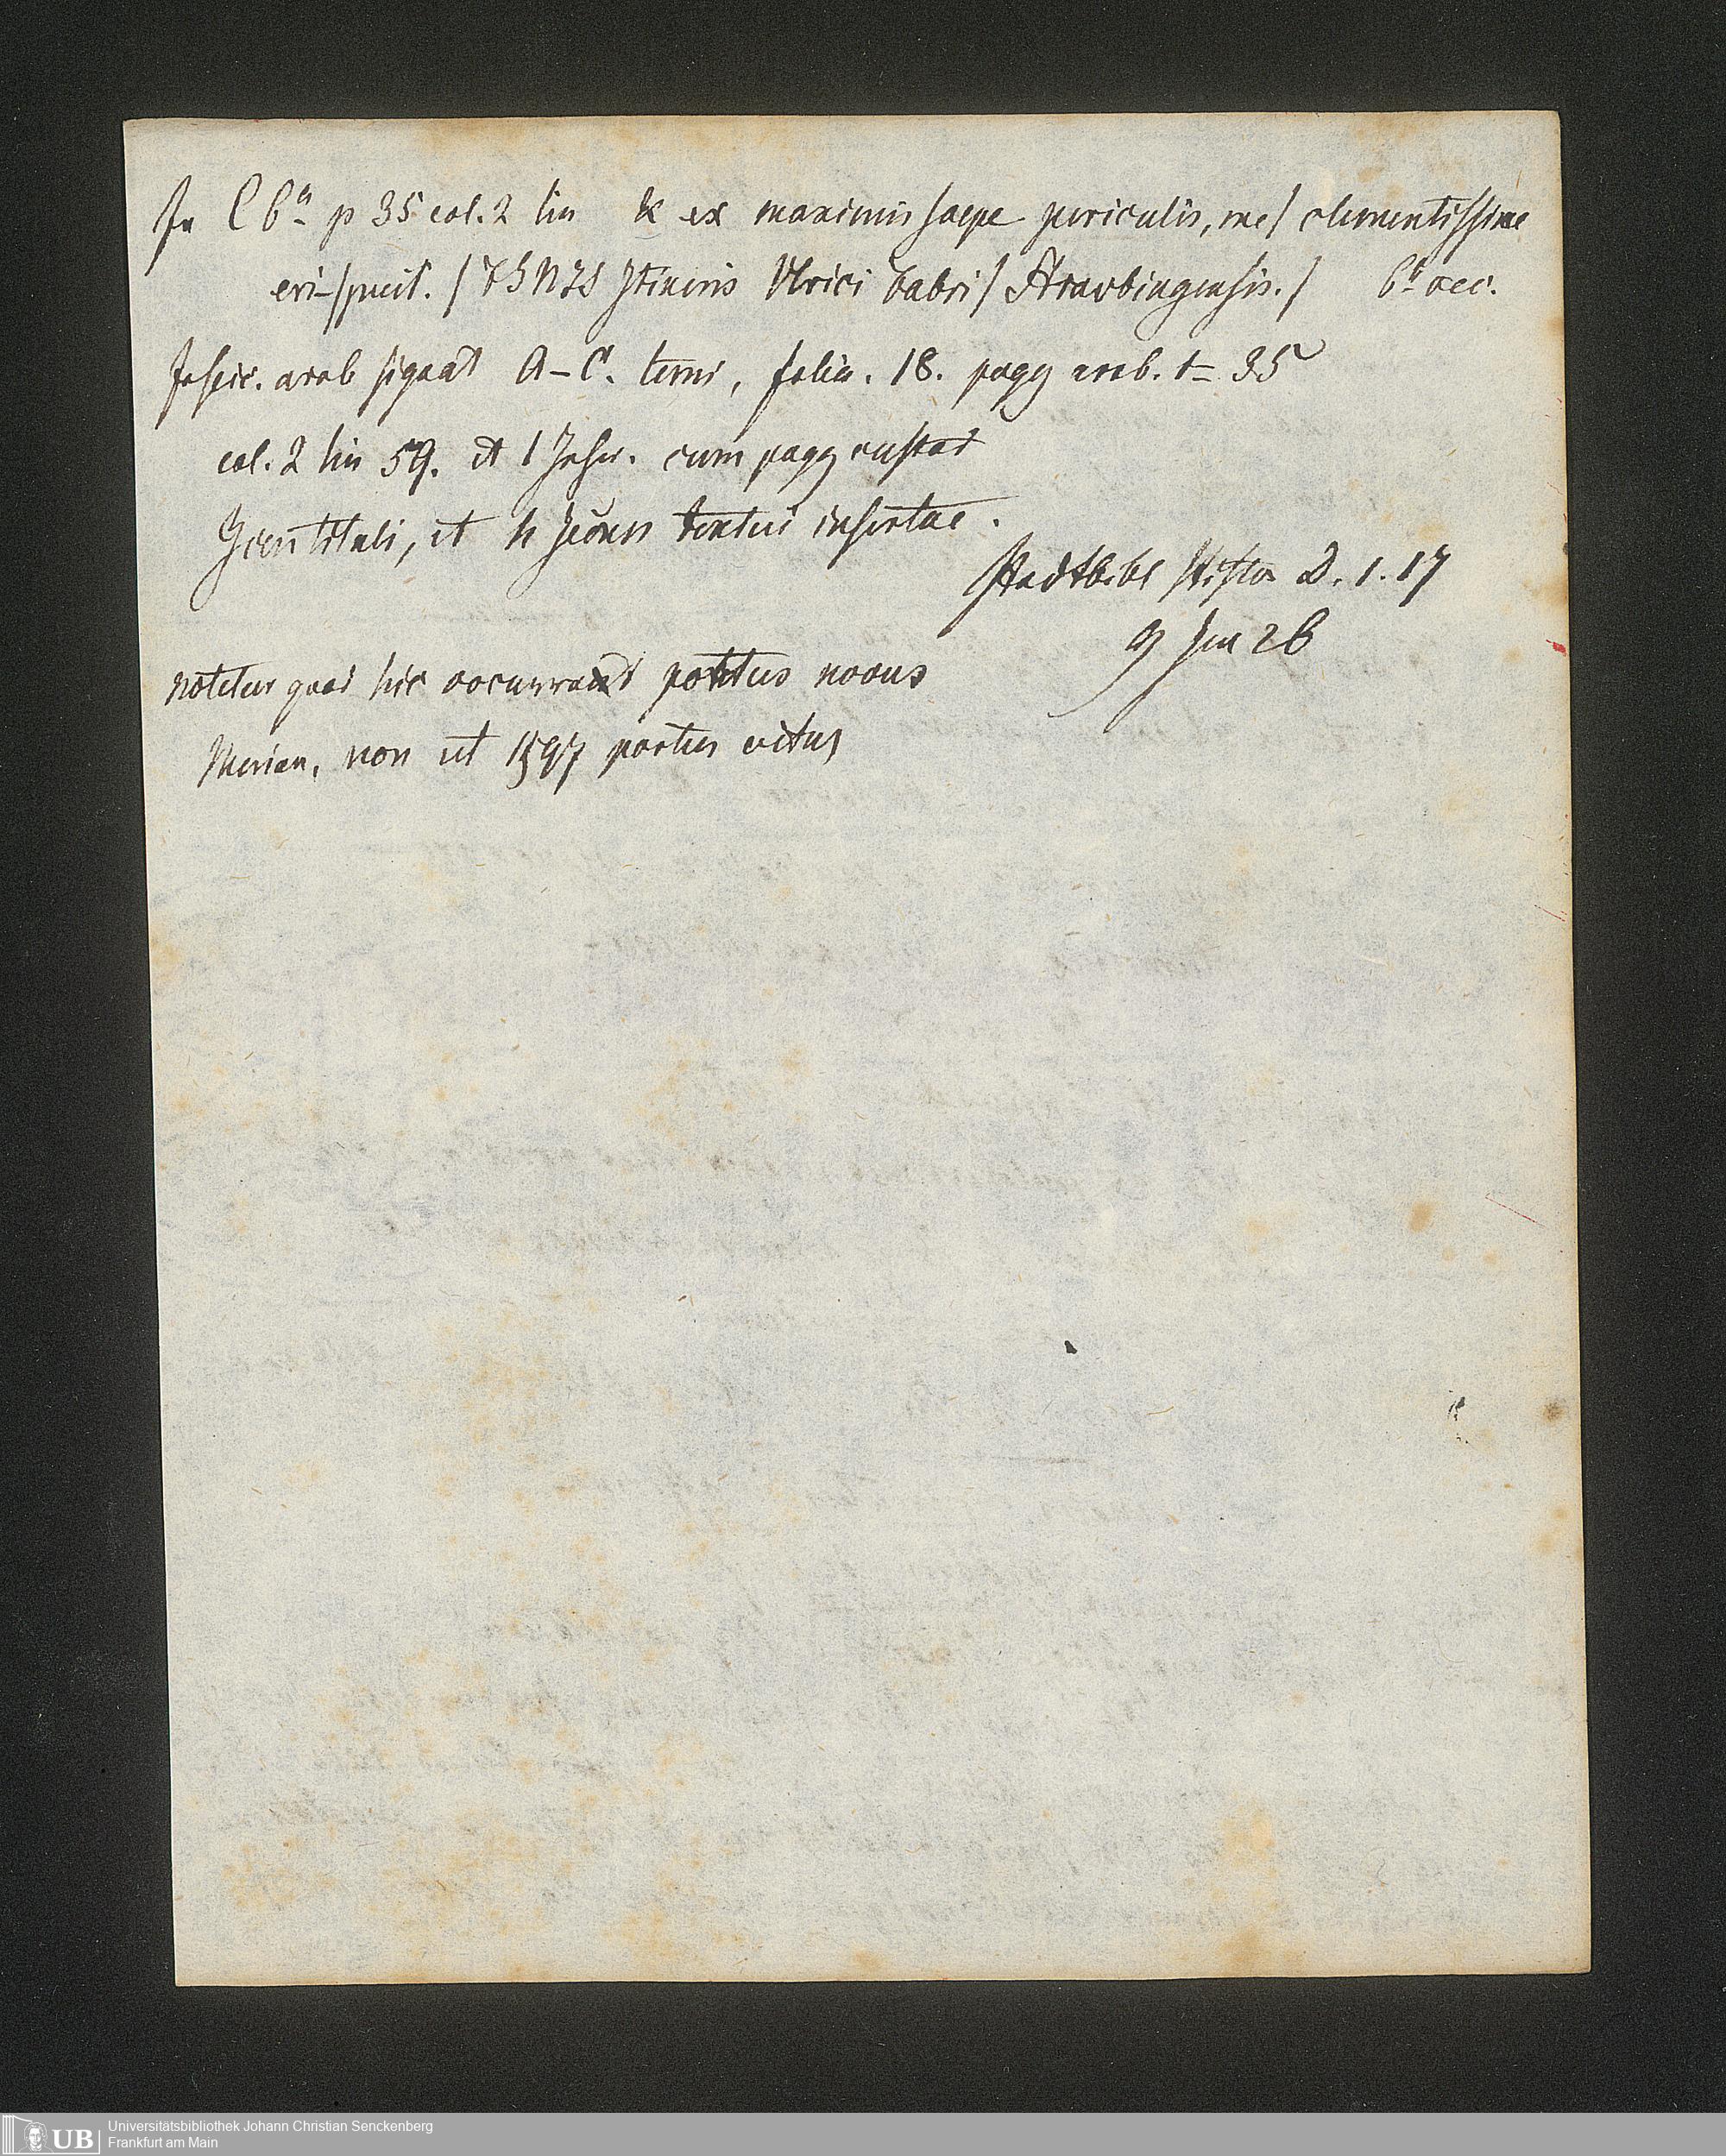 In C 6a p 35 col. 2 lin & ex maximis saepe periculis, me/ clementissime
eri-/puit. / FINIS Itineris Ulrici Fabri/ Straubingensis./ 6t occ.
Fascic. arab signat A–C. terni, folia. 18. pagg arab. 1–35
col. 2 lin 59. et 1 Fasc. cum pagg custod
Icon tituli, et h Icones textui insertae.
Stadtbibl Histor D. 1. 17
9 Jun 26
notetur quod hic occurrant portus novus
Merian, non ut 1597 portus vetus
Universitätsbibliothek Johann Christian Senckenberg
Frankfurt am Main
UB